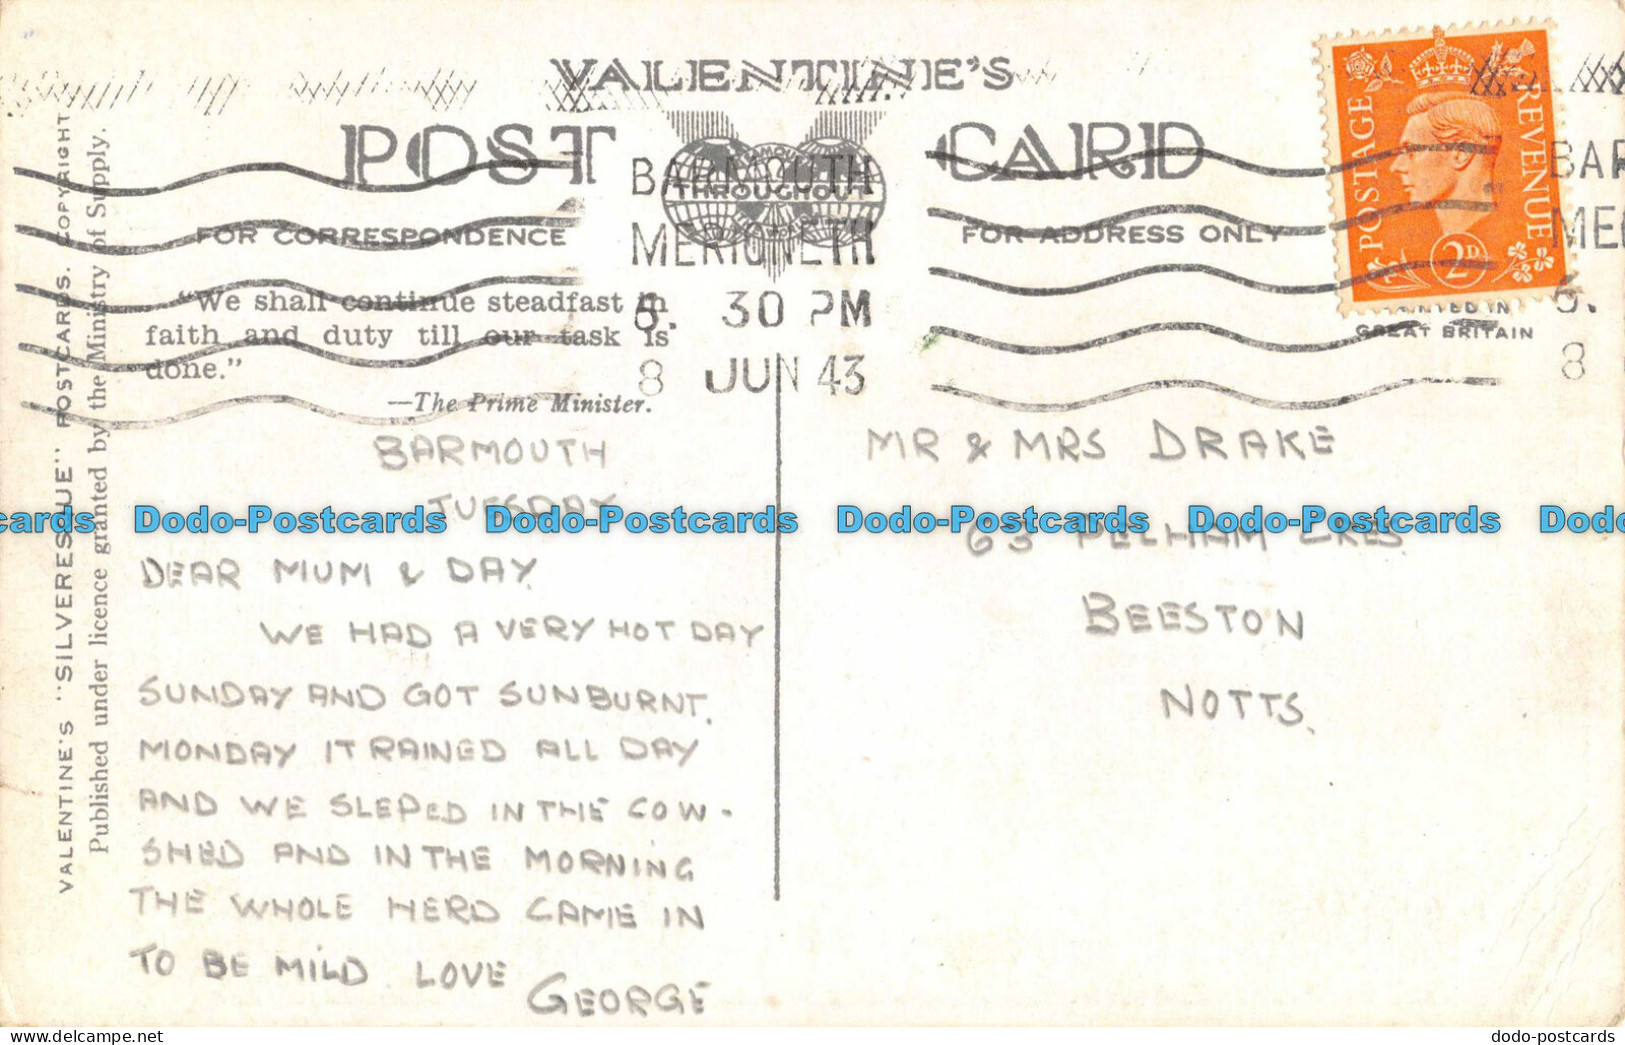 VALENTINE'S
POST CARD
FAMOUS THROUGHOUT
FOR CORRESPONDENCE
FOR ADDRESS ONLY
BARMOUTH
MERIONETH
6. 30 PM
8 JUN 43
BAR
ME
6.
8
POSTAGE REVENUE
2D
PRINTED IN
GREAT BRITAIN
"We shall continue steadfast in
faith and duty till our task is
done."
—The Prime Minister.
VALENTINE'S "SILVERESQUE" POSTCARDS. COPYRIGHT
Published under licence granted by the Ministry of Supply.
BARMOUTH
TUESDAY
DEAR MUM & DAY
WE HAD A VERY HOT DAY
SUNDAY AND GOT SUNBURNT.
MONDAY IT RAINED ALL DAY
AND WE SLEPED IN THE COW-
SHED AND IN THE MORNING
THE WHOLE HERD CAME IN
TO BE MILD LOVE
GEORGE
MR & MRS DRAKE
63 PELHAM CRES
BEESTON
NOTTS.
cards Dodo-Postcards Dodo-Postcards Dodo-Postcards Dodo-Postcards Dodo
dodo-postcards
dodo-postcards